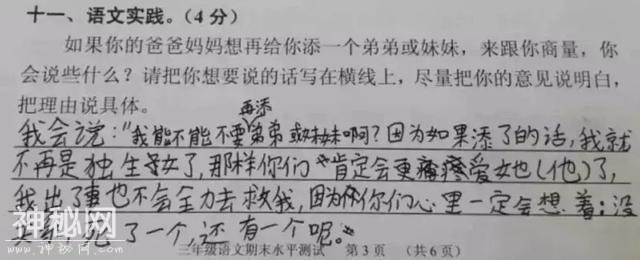 十一、语文实践。(4分)
如果你的爸爸妈妈想再给你添一个弟弟或妹妹，来跟你商量，你
会说些什么？请把你想要说的话写在横线上，尽量把你的意见说明白，
把理由说具体。
再添
我会说："我能不能不要弟弟或妹妹啊？因为如果添了的话，我就
不再是独生子女了，那样你们肯定会更疼爱她(他)了，
我出了事也不会全力去救我，因为你们心里一定会想着：没
死了一个，还有一个呢。"
三年级语文期末水平测试 第3页 (共6页)
神秘网
www.神秘网.com